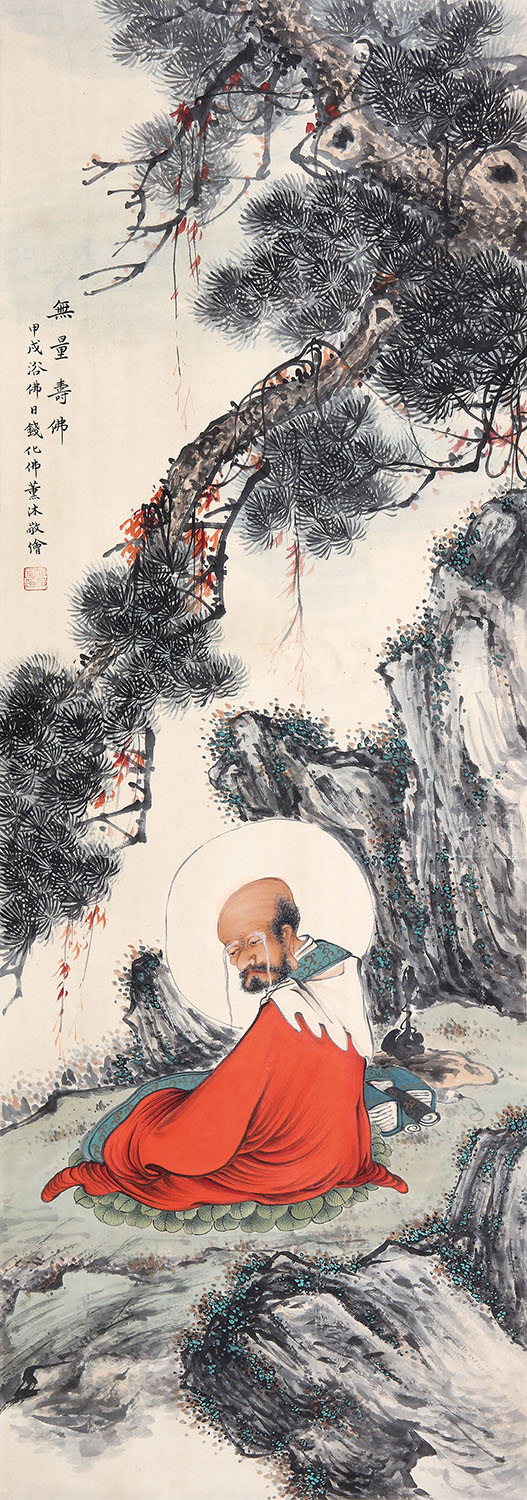 無量壽佛
甲戌浴佛日錢化佛薰沐敬繪